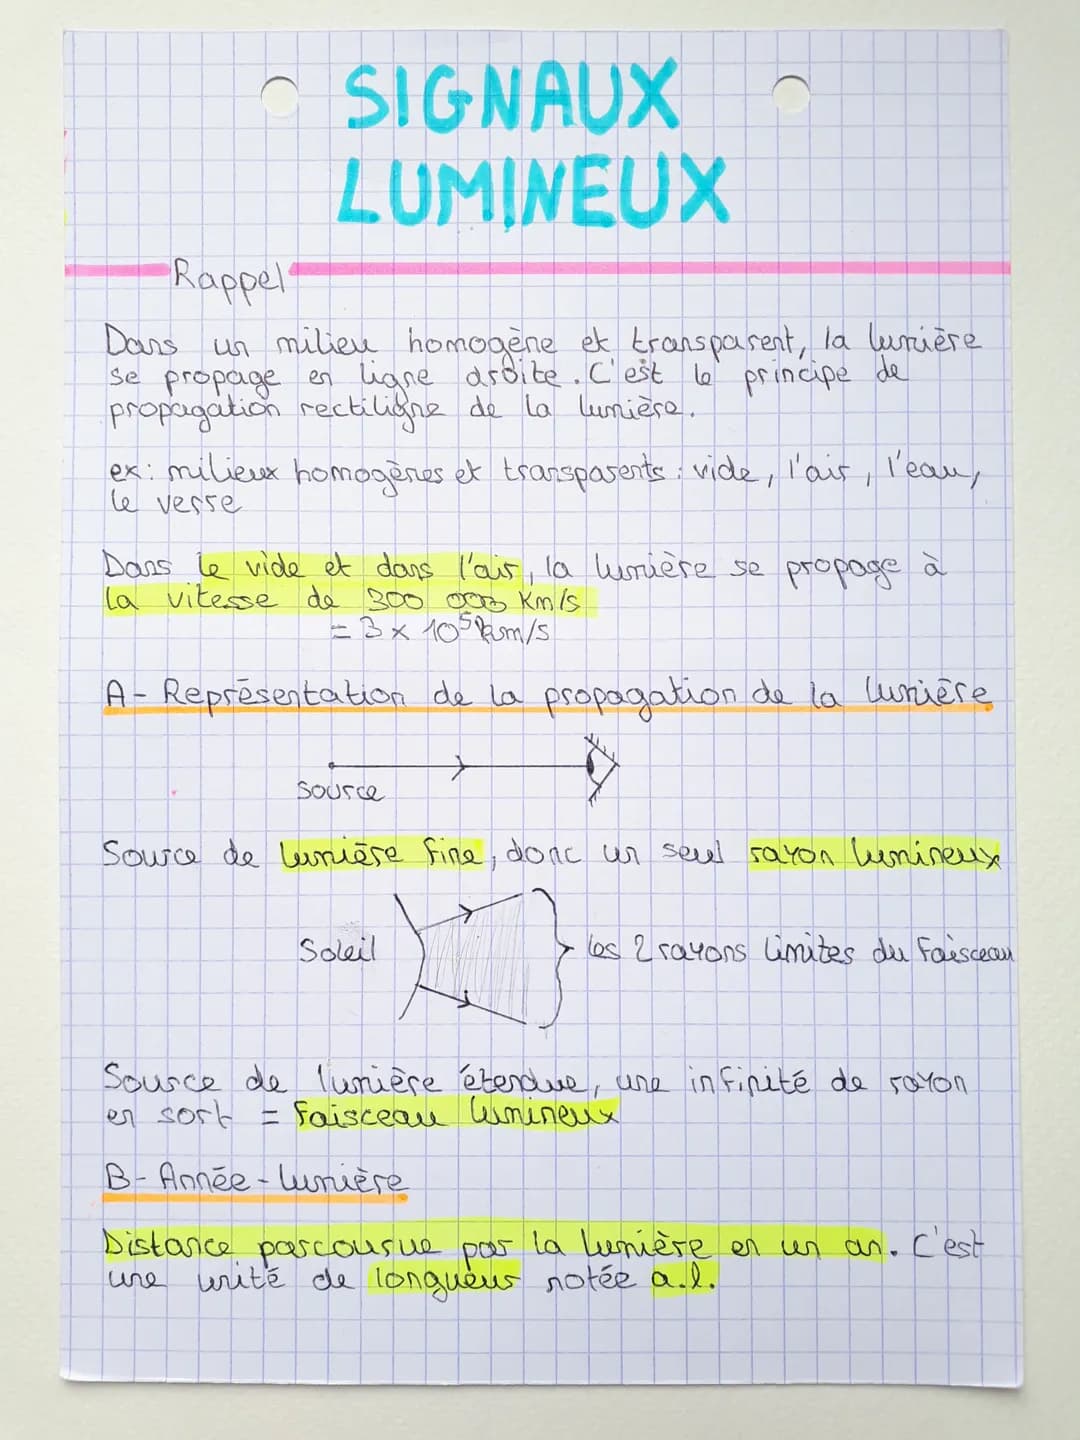 SIGNAUX
LUMINEUX
Rappel
Dans un milieu homogène et transparent, la lumière
se propage en ligne droite. C'est le principe de
propagation rectiligne de la lumière.
ex: milieux homogènes et transparents : vide, l'air, l'eau,
le verre
Dans le vide et dans l'air, la lumière se propage à
la vitesse de 300 000 Km/s
= 3 x 10⁵ km/s
A- Représentation de la propagation de la lumière
Source
Source de lumière fine, donc un seul rayon lumineux
Soleil
les 2 rayons limites du faisceau
Source de lumière étendue, une infinité de rayon
en sort = faisceau lumineux
B- Année-lumière
Distance parcourue par la lumière en un an. C'est
une unité de longueur notée a.l.